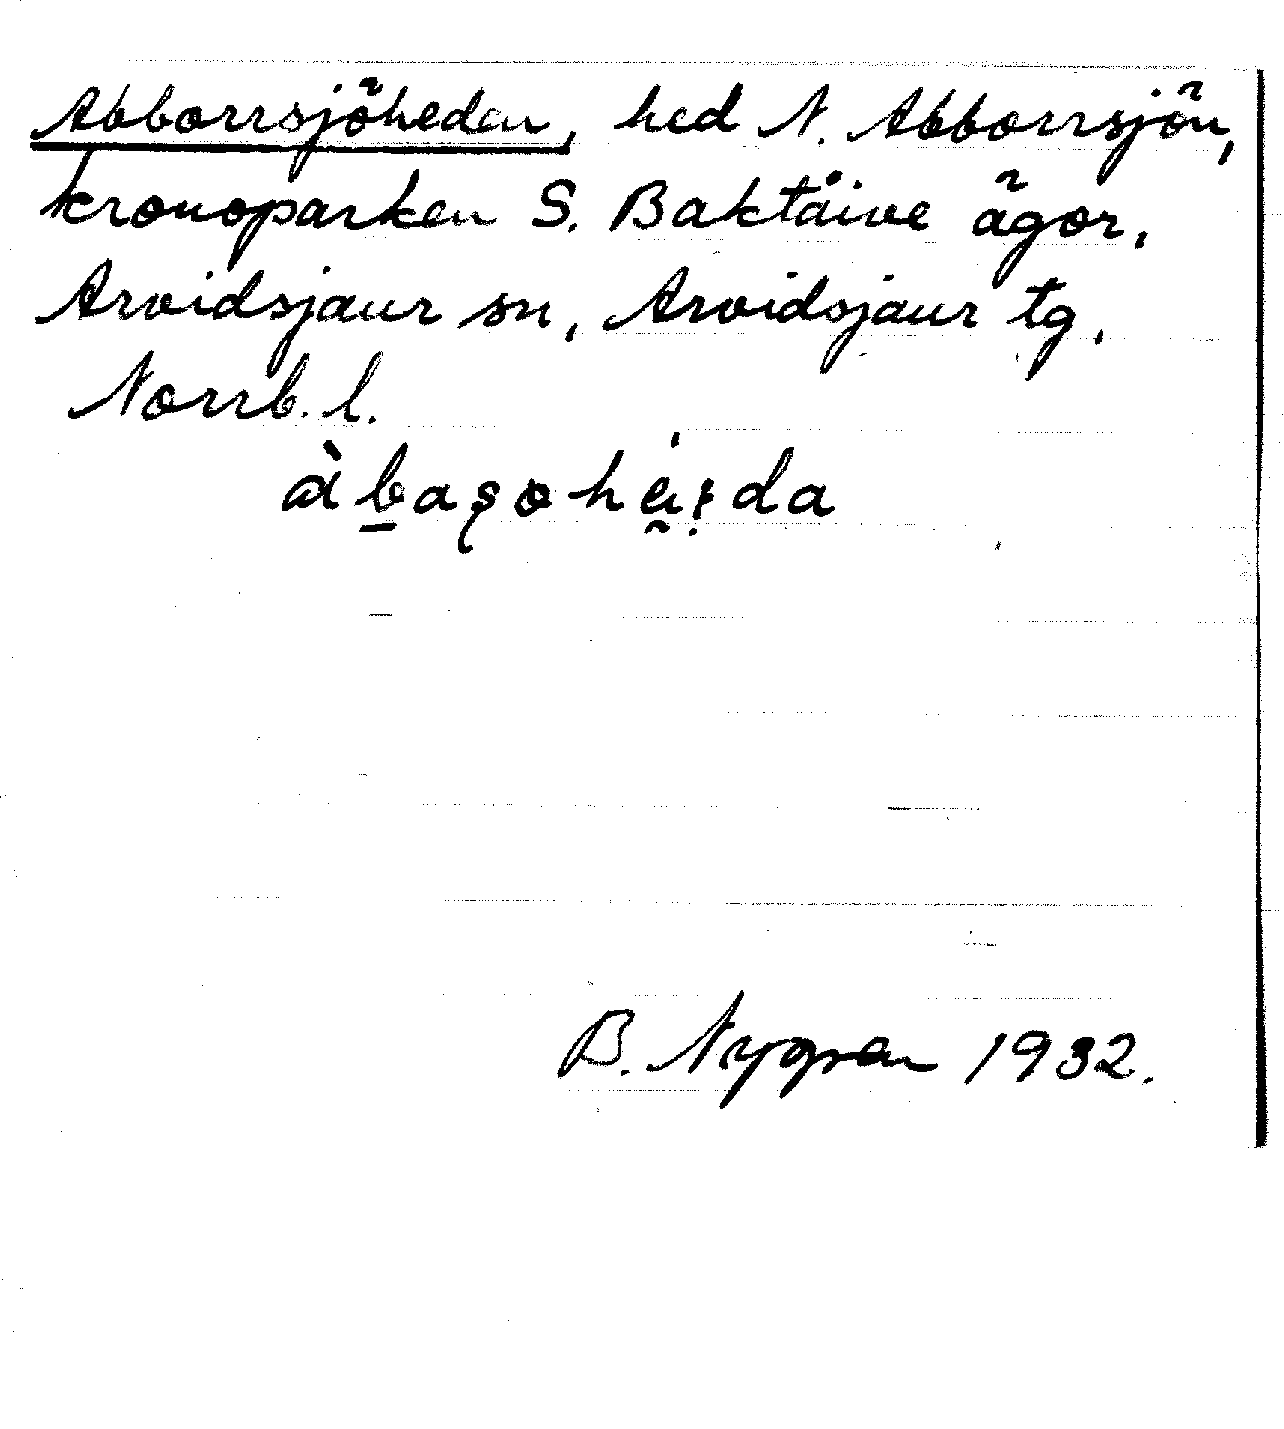 Abborrsjöheden, hed N. Abborrsjön,
kronoparken S. Baktåive ägor,
Arvidsjaur sn, Arvidsjaur tg,
Norrb. l.
B. Nygren 1932.